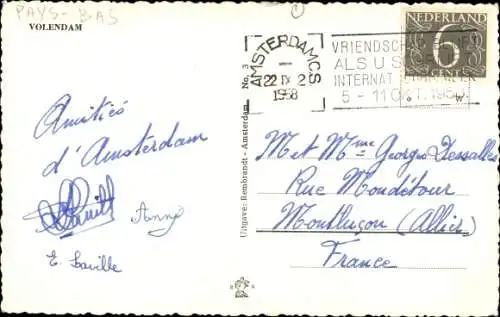 PAYS-BAS
VOLENDAM
Amitiés
d'Amsterdam
Anny
E. Laville
Uitgave: Rembrandt - Amsterdam No. 3
AMSTERDAM C.S.
22 IX 2
1958
VRIENDSCH
ALS U S
INTERNAT
5-11 OKT. 1958
NEDERLAND
6
CENT
M et Mme Georges Dessalles
Rue Mondétour
Montluçon (Allier)
France